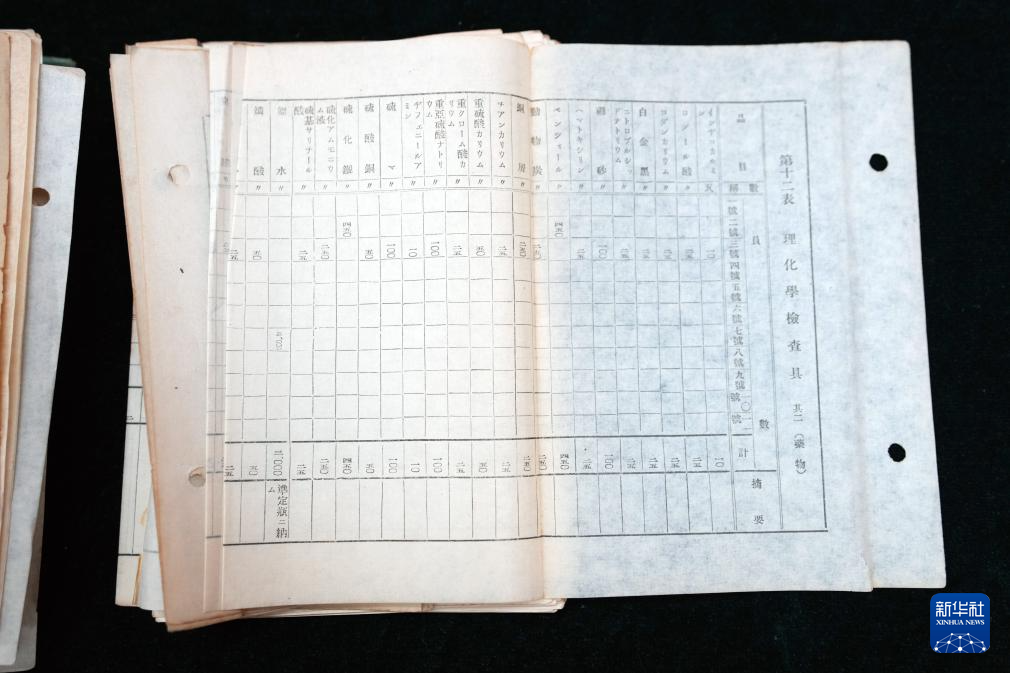 第十二表 理化學檢査具 其二(藥物)
品目
數員
數
稱
瓦
一號二號三號四號五號六號七號八號九號一〇號一一號
計
摘要
インヂゴカルミン 〃 一〇 一〇
ロゾール酸 〃 二五 二五
ロダンカリウム 〃 二五 二五
白金黑 〃 二五 二五
ニトロプルシッドナトリウム 〃 二五 二五
硼砂 〃 一〇〇 一〇〇
ヘマトキシリン 〃 二五 二五
ベンヂィール 四五〇 四五〇
動物炭 〃 二五〇 二五〇
銅屑 〃 二五〇 二五〇
チアンカリウム 〃 二五 二五
重硫酸カリウム 〃 五〇 五〇
重クローム酸カリウム 〃 二五 二五
重亞硫酸ナトリウム 〃 一〇〇 一〇〇
ヂフェニールアミン 〃 一〇 一〇
硫マ 〃 一〇〇 一〇〇
硫酸銅 〃 五〇 五〇
硫化鐵 〃 四五〇 四五〇
硫化アムモニウム液 〃 二五〇 二五〇
硫基サリチール酸 〃 二五 二五
水 〃 二、〇〇〇 二、〇〇〇 準定瓶ニ納ム
燐酸 〃 五〇 五〇
二五 二五
新华社
XINHUA NEWS